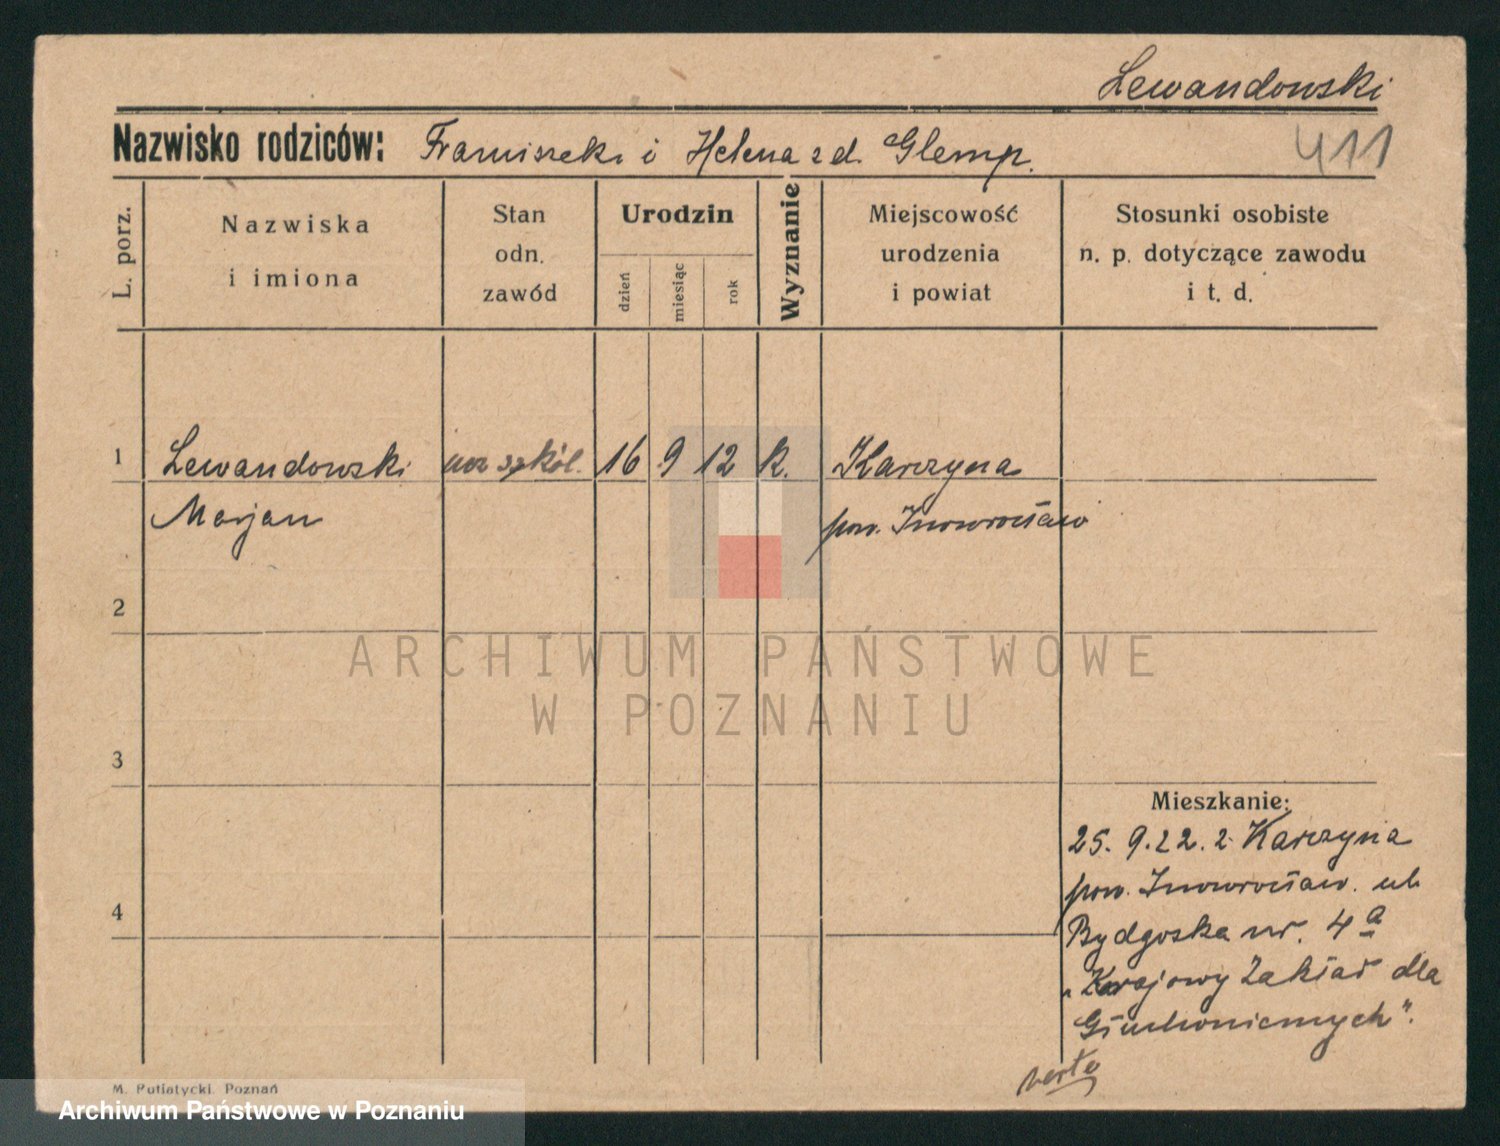 Lewandowski
Nazwisko rodziców: Franciszek i Helena z d. Glemp.
411
L. porz.
Nazwiska
i imiona
Stan
odn.
zawód
Urodzin
dzień
miesiąc
rok
Wyznanie
Miejscowość
urodzenia
i powiat
Stosunki osobiste
n. p. dotyczące zawodu
i t. d.
1
Lewandowski
ucz szkół.
16
9
12
k.
Karczyna
Marjan
pow. Inowrocław
2
ARCHIWUM PAŃSTWOWE
W POZNANIU
3
Mieszkanie:
25. 9.22. z Karczyna
pow. Inowrocław. ul.
4
Bydgoska nr. 4a
„Krajowy Zakład dla
Głuchoniemych".
verte
M. Putiatycki, Poznań
Archiwum Państwowe w Poznaniu